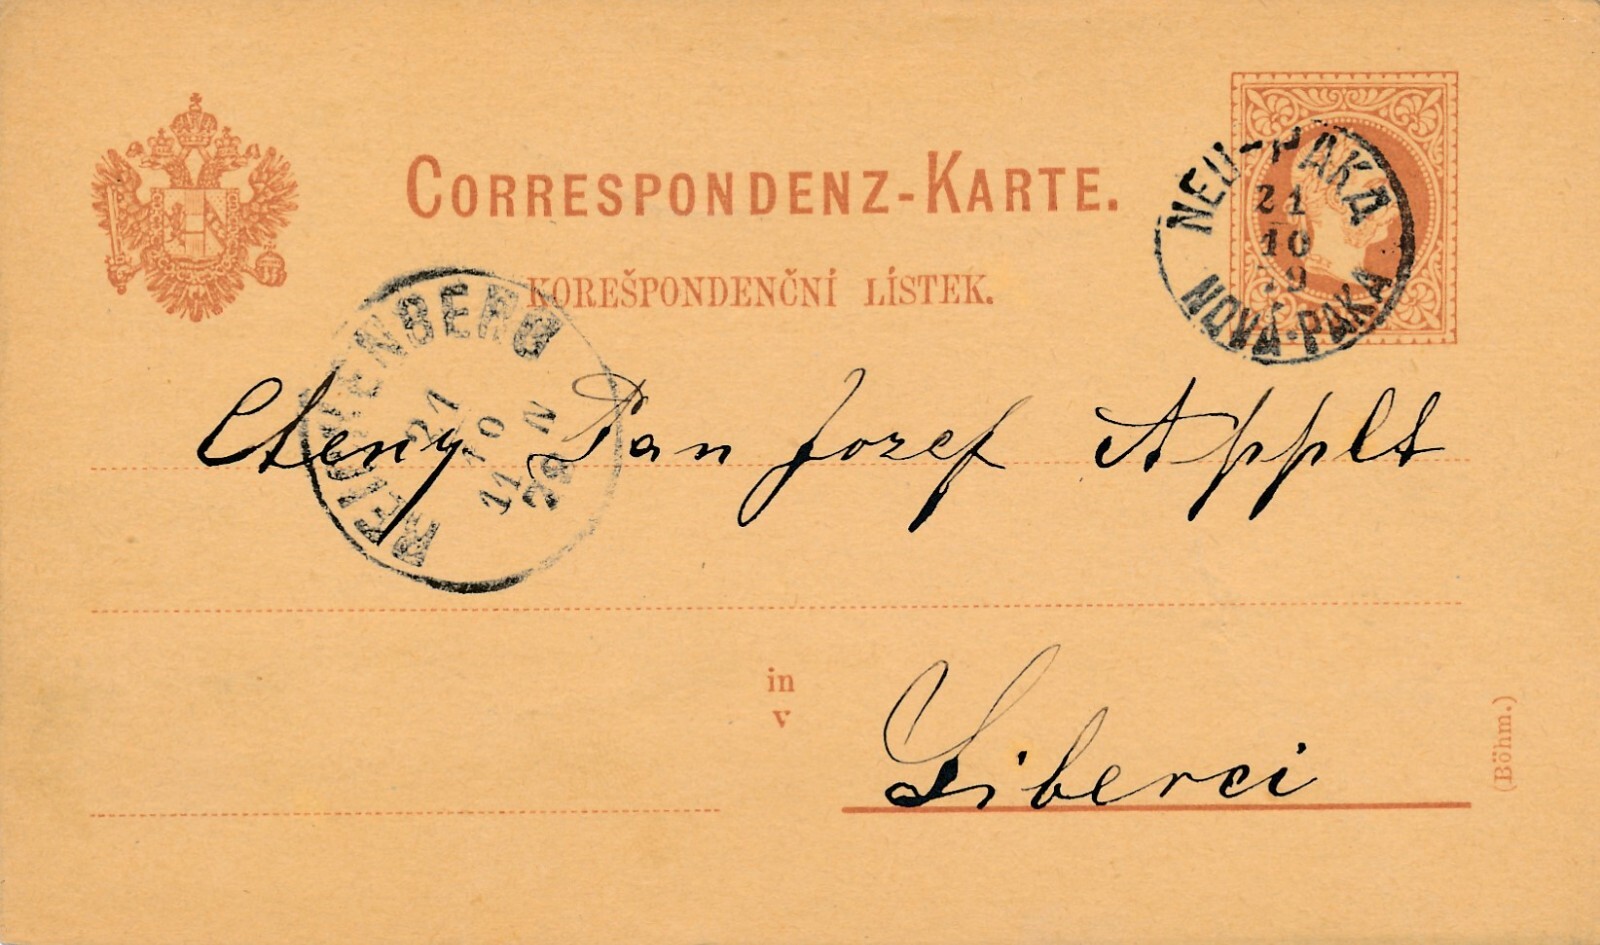 CORRESPONDENZ-KARTE.
KOREŠPONDENČNÍ LÍSTEK.
NEU-PAKA
21
10
79
NOVÁ-PAKA
REICHENBERG
21
10
11 N
79
Cteny Pan Jozef Applt
in
v
Liberci
(Böhm.)